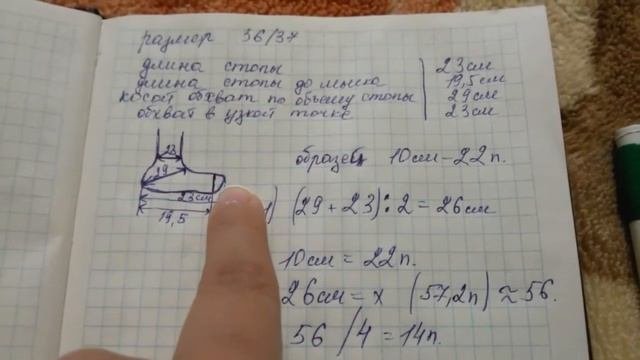 размер 36/37
длина стопы 23см
длина стопы до мыска 19,5см
косой обхват по объему стопы 29см
обхват в узкой точке 23см
23
29
23см
19,5
образец 10см – 22п.
) (29 + 23) : 2 = 26см
10см = 22п.
26см = х (57,2п) ≈ 56.
56 / 4 = 14п.